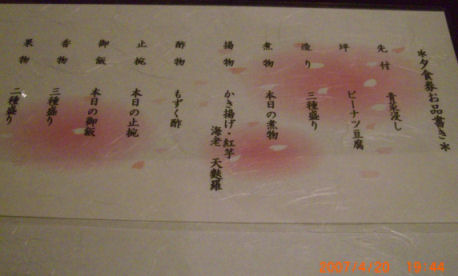 *夕食券お品書き*
先付 青菜浸し
坪 ピーナツ豆腐
造り 三種盛り
煮物 本日の煮物
揚物 かき揚げ・紅芋
海老 天麩羅
酢物 もずく酢
止椀 本日の止椀
御飯 本日の御飯
香物 三種盛り
果物 二種盛り
2007/4/20 19:44